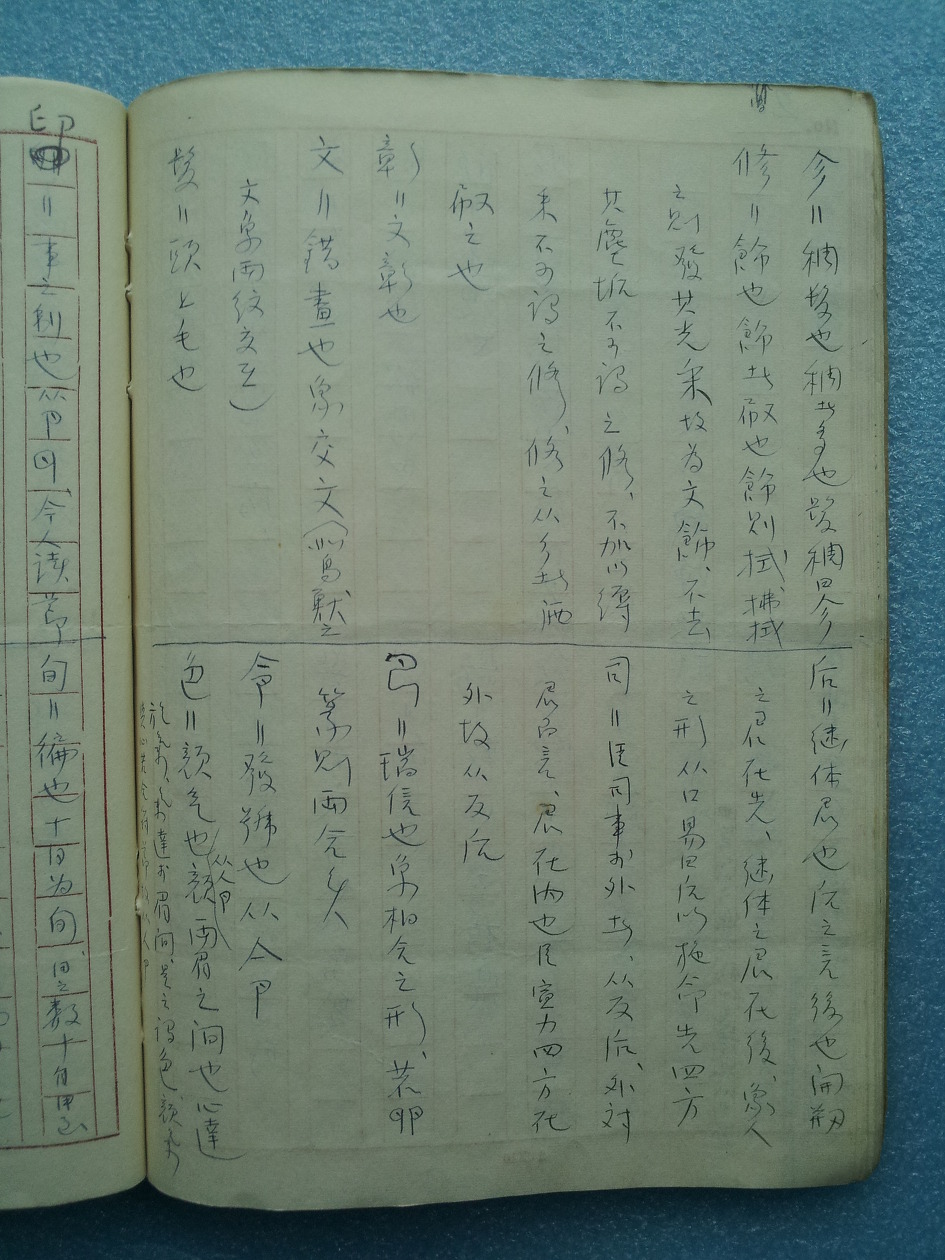 㐱〃稠髮也稠者多也髮稠曰㐱
修〃飾也飾者㕞也飾則拭、拂拭
之則發其光采故为文飾、不去
其塵垢不可謂之修、不加以縟
采不可謂之修、修之从彡者洒
㕞之也
彰〃文彰也
文〃錯畫也象交文(鸟獸之
文象兩纹交互)
髮〃頭上毛也
后〃继体君也后之言後也開剏
之君在先、继体之君在後、象人
之形从口易曰后以施命告四方
司〃臣司事於外者、从反后、外对
君而言、君在内也臣宣力四方在
外故从反后
卪〃瑞信也象相合之形、
篆則兩合矣
令〃發號也从亼卪
色〃顔气也顔兩眉之间也心達
从人卪
於氣、氣達於眉间、是之謂色、顔氣
印
〃事之制也从卪
今人读
旬〃徧也十日为旬日之数十自甲至